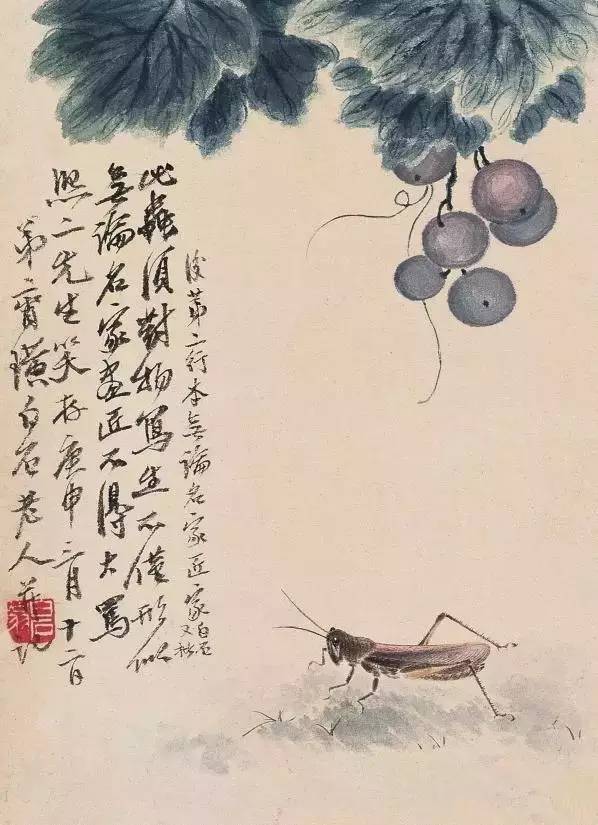 此蟲須對物寫生不僅形似
無論名家畫匠不得大罵
熙二先生笑存庚申三月十二日
弟齊璜白石老人并記
第二行本無論名家匠家
白石又
白石翁